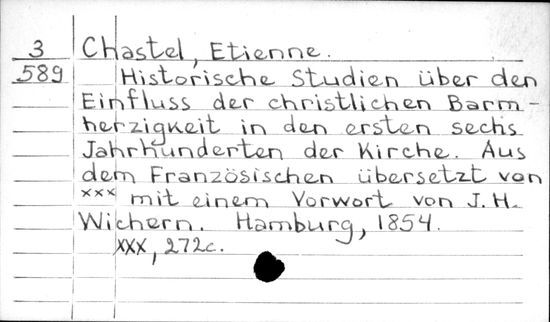 3 Chastel, Etienne.
589 Historische Studien über den
Einfluss der christlichen Barm-
herzigkeit in den ersten sechs
Jahrhunderten der Kirche. Aus
dem Französischen übersetzt von
xxx mit einem Vorwort von J.H.
Wichern. Hamburg, 1854.
XXX, 272c.